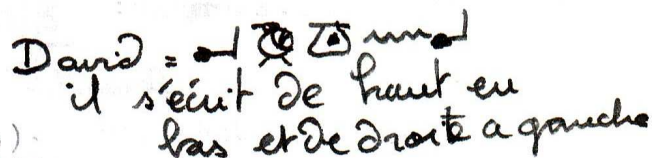 David =
il s'écrit de haut en
bas et de droite a gauche